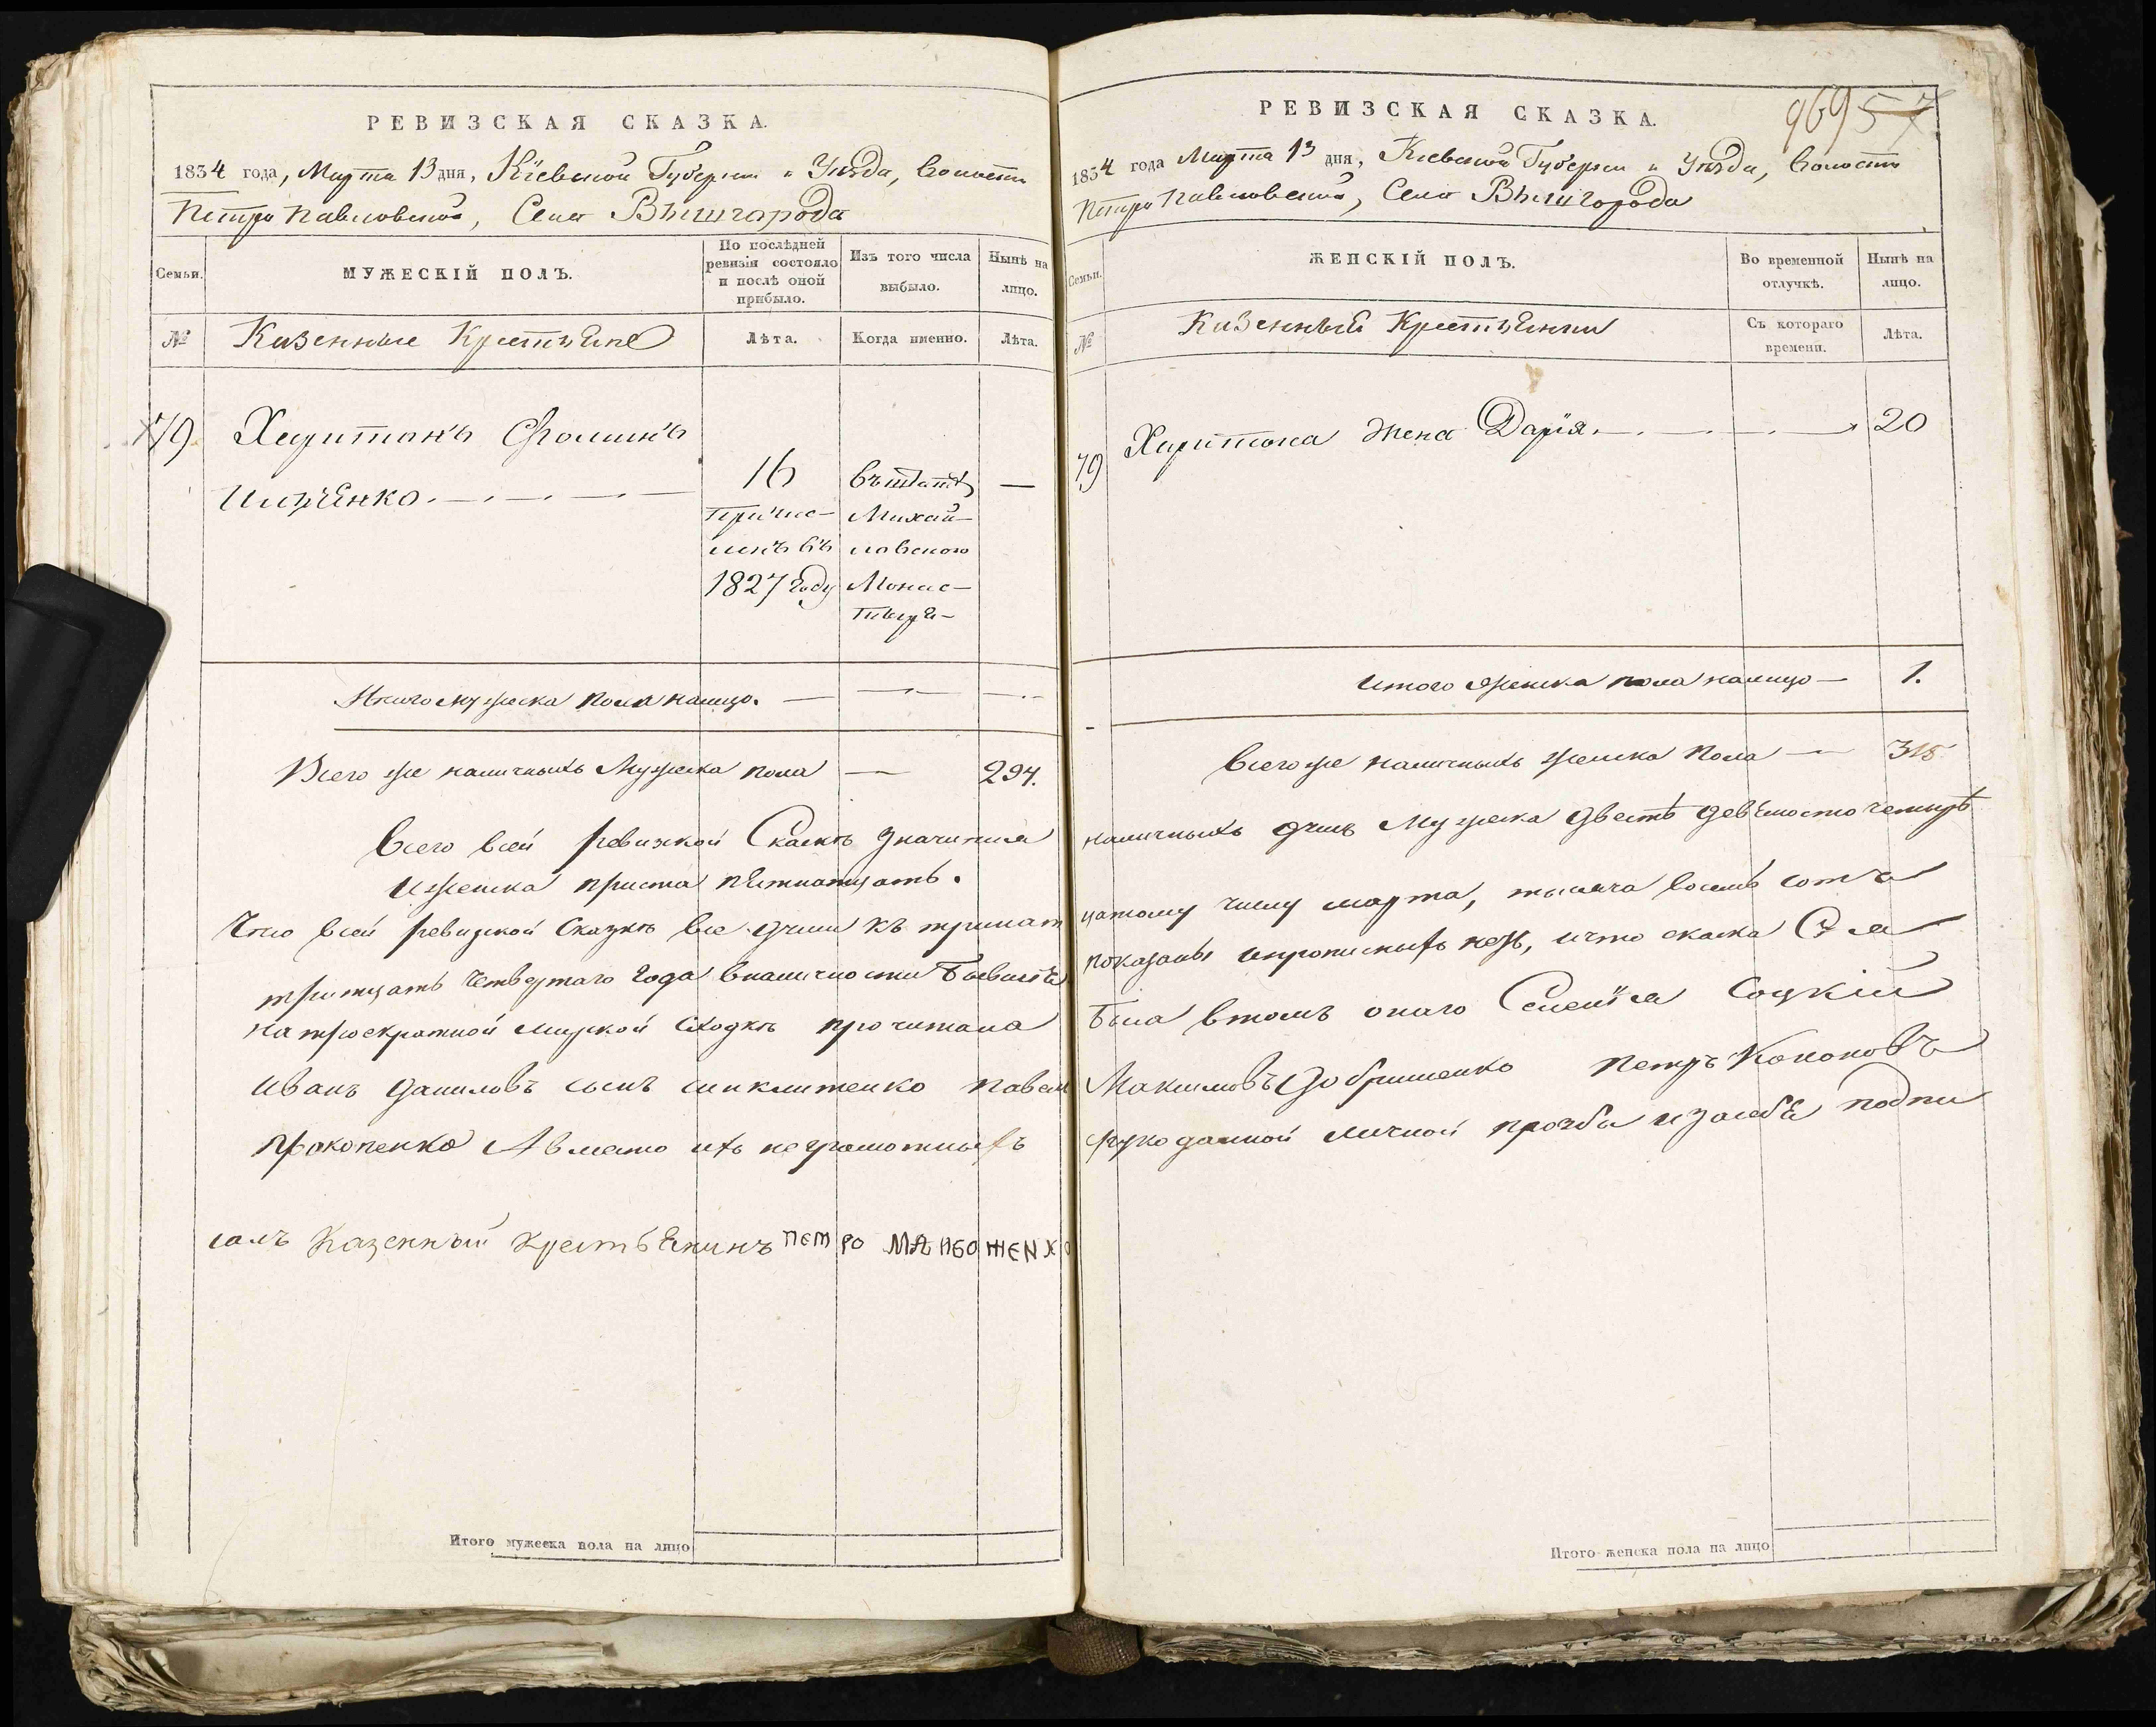 РЕВИЗСКАЯ СКАЗКА.
1834 года, Марта 13 дня, Кіевской Губерніи и Уѣзда, Волости
Петро Павловской, Села Вышгорода
Семьи.
МУЖЕСКІЙ ПОЛЪ.
По послѣдней ревизіи состояло и послѣ оной прибыло.
Изъ того числа выбыло.
Нынѣ на лицо.
№
Казенные Крестьяне
Лѣта.
Когда именно.
Лѣта.
79
Харитонъ Фоминъ
16
въ штатѣ
—
Ищенко
Причис-
Михай-
ленъ въ
ловского
1827 году
Монас-
тыря-
Итого мужеска пола налицо. —
Всего же наличныхъ Мужеска пола — 294.
Всего всей ревизкой Сказкѣ значится
и женска триста пятнатцать.
Что всей ревизкой Сказкѣ все души къ тринат
тритцать четвертаго года вналичности бывшіе
на троекратной мирской сходкѣ прочитана
Иванъ Даниловъ сынъ Павел
Прокопенко А вместо ихъ неграмотныхъ
салъ Казенный крестьянинъ ПЕТРО
Итого мужеска пола на лицо
969 57
РЕВИЗСКАЯ СКАЗКА.
1834 года Марта 13 дня, Кіевской Губерніи и Уѣзда, Волости
Петро Павловской, Села Вышгорода
Семьи.
ЖЕНСКІЙ ПОЛЪ.
Во временной отлучкѣ.
Нынѣ на лицо.
№
Казенныя Крестьянки
Съ котораго времени.
Лѣта.
79
Харитона жена Дарія
20
Итого женска пола налицо — 1.
Всего же наличныхъ женска пола — 315
наличныхъ душъ Мужеска двестѣ девяносто четырѣ
цатому числу марта, тысяча восемь сотъ
показаны ипрописныхъ нетъ, ичто скаска Сія
была втомъ онаго Селенія Соцкій
Максимовъ Петръ Кононовъ
рукоданной личной прозбы изасебя подпи
Итого женска пола на лицо